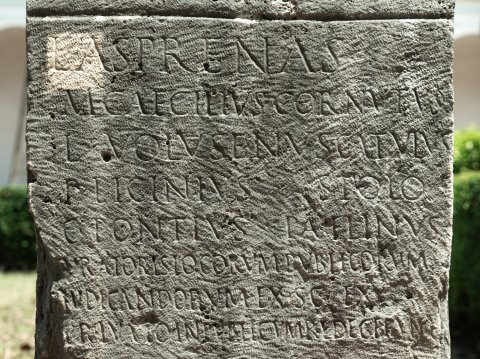 L ASPRENAS
M CAECILIVS CORNVTVS
L VOLVSENVS CATVLVS
P LICINIVS STOLO
C PONTIVS PAELINVS
LOCORVM PVBLICORVM
IVDICANDORVM EX S C EX
PRIVATO IN PVBLICVM REDEGERVNT